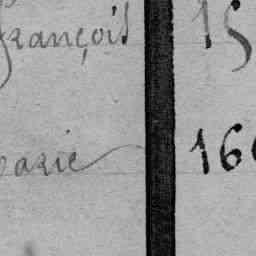 François 15
Marie 160